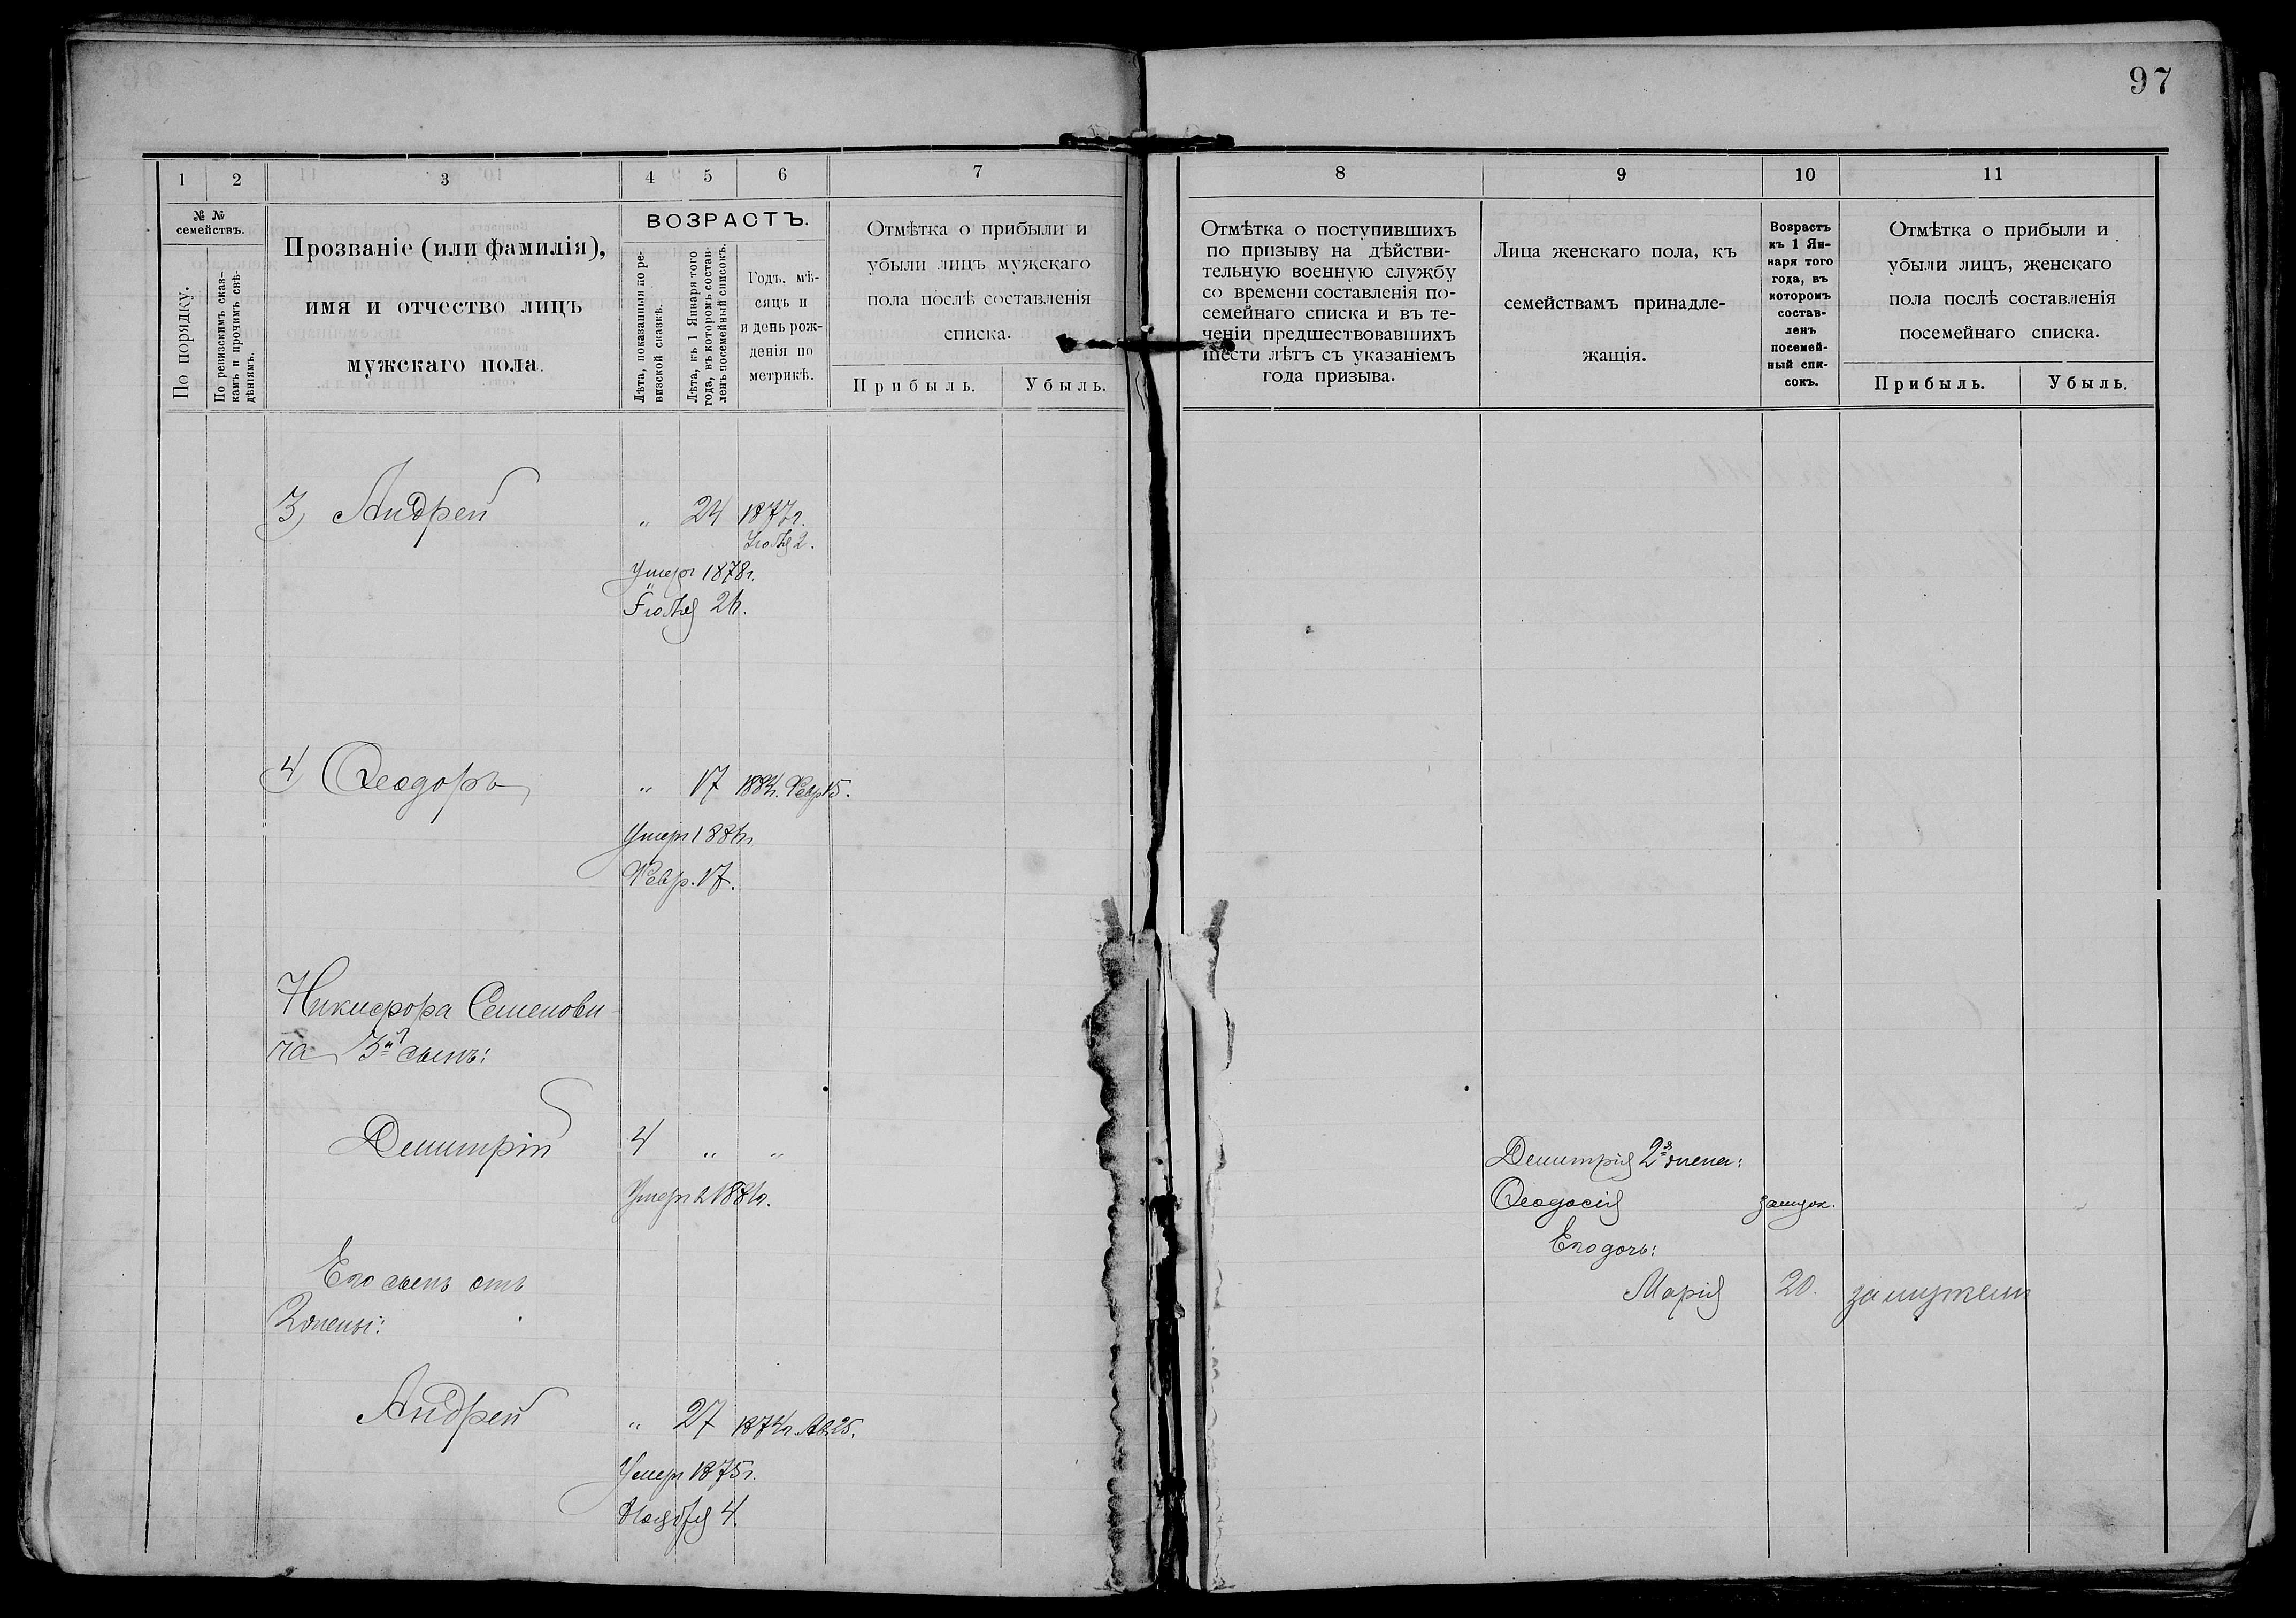 97
1 2 3 4 5 6 7 8 9 10 11
№ №
семействъ.
По порядку.
По ревизскимъ сказ-
камъ и прочимъ свѣ-
дѣніямъ.
Прозваніе (или фамилія),
имя и отчество лицъ
мужскаго пола.
ВОЗРАСТЪ.
Лѣта, показанныя по ре-
визской сказкѣ.
Лѣта, къ 1 Января того
года, въ которомъ состав-
ленъ посемейный списокъ.
Годъ, мѣ-
сяцъ и
и день рож-
денія по
метрикѣ.
Отмѣтка о прибыли и
убыли лицъ мужскаго
пола послѣ составленія
списка.
Прибыль. Убыль.
Отмѣтка о поступившихъ
по призыву на дѣйстви-
тельную военную службу
со времени составленія по-
семейнаго списка и въ те-
ченіи предшествовавшихъ
шести лѣтъ съ указаніемъ
года призыва.
Лица женскаго пола, къ
семействамъ принадле-
жащія.
Возрастъ
къ 1 Ян-
варя того
года, въ
которомъ
состав-
ленъ
посемей-
ный спи-
сокъ.
Отмѣтка о прибыли и
убыли лицъ, женскаго
пола послѣ составленія
посемейнаго списка.
Прибыль. Убыль.
3, Андрей „ 24 1877г.
Іюля 2.
Умеръ 1878г.
Іюля 26.
4, Ѳеодоръ „ 17 1884г. Февр 15.
Умеръ 1886г.
Февр. 17.
Никифора Семенови
ча 3й сынъ:
Димитрій 4 „ „
Умеръ 1886г.
Димитрія 2я жена:
Ѳеодосія
Его дочь:
Марія 20. замужемъ
Его сынъ отъ
2 жены:
Андрей „ 27 1874г. Ав 25.
Умеръ 1875г.
Ноября 4.